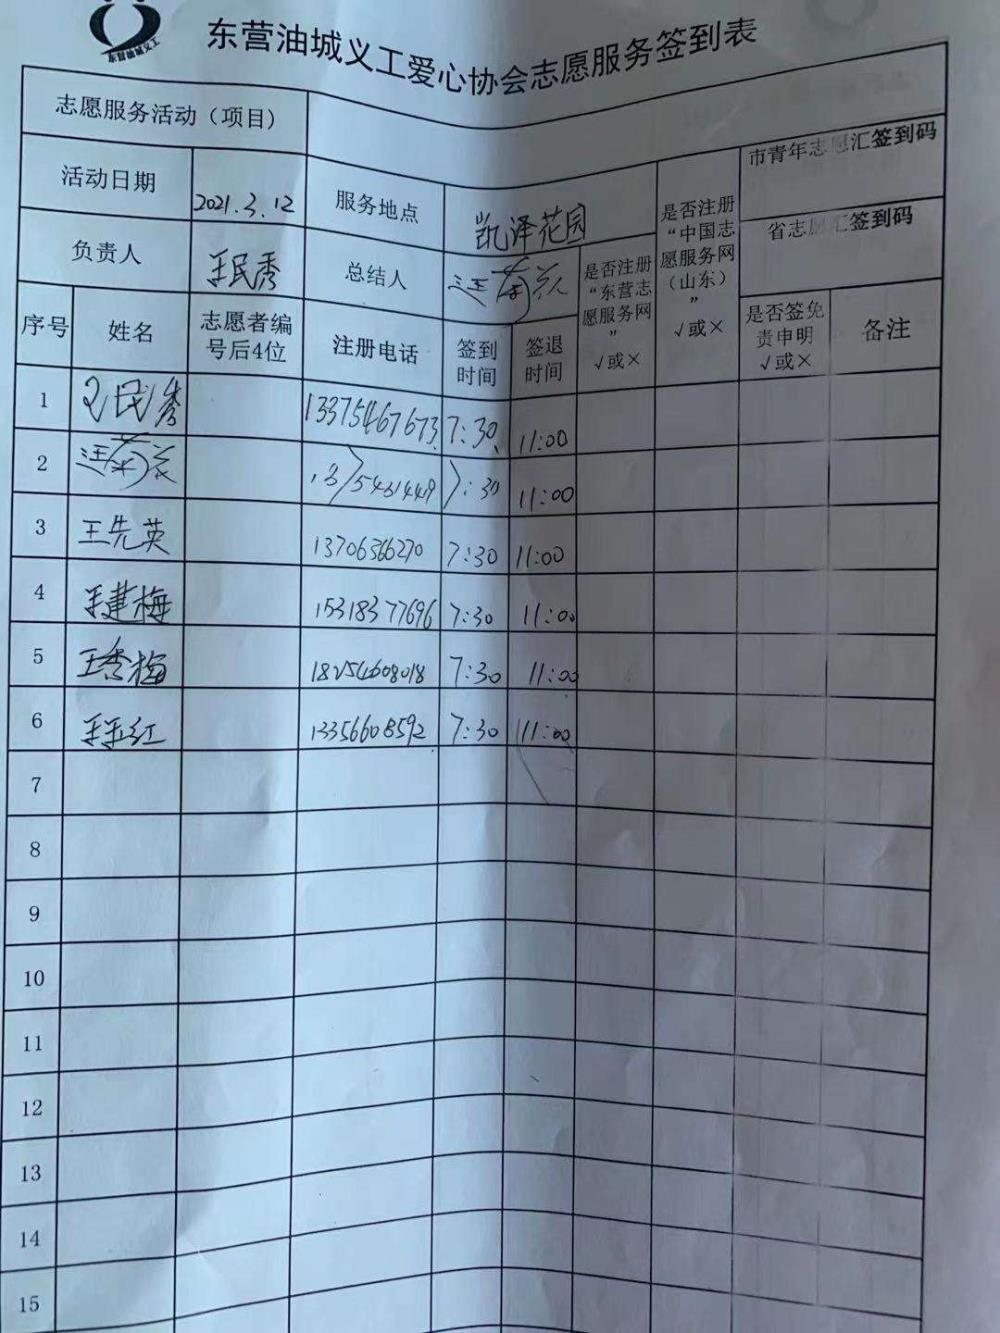 东营油城义工
东营油城义工爱心协会志愿服务签到表
志愿服务活动（项目）
活动日期 2021.3.12 服务地点 凯泽花园 是否注册“中国志愿服务网（山东）” √或× 市青年志愿汇签到码
负责人 王民秀 总结人 是否注册“东营志愿服务网” √或× 省志愿汇签到码
序号 姓名 志愿者编号后4位 注册电话 签到时间 签退时间 是否签免责申明 √或× 备注
1 王民秀 13375467673 7:30 11:00
2 7:30 11:00
3 王先英 13706366270 7:30 11:00
4 王建梅 15318377696 7:30 11:00
5 王秀梅 18254608018 7:30 11:00
6 13356608592 7:30 11:00
7
8
9
10
11
12
13
14
15